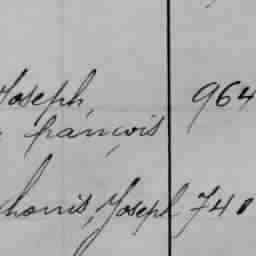 Joseph, 964
françois
honis, Joseph 740